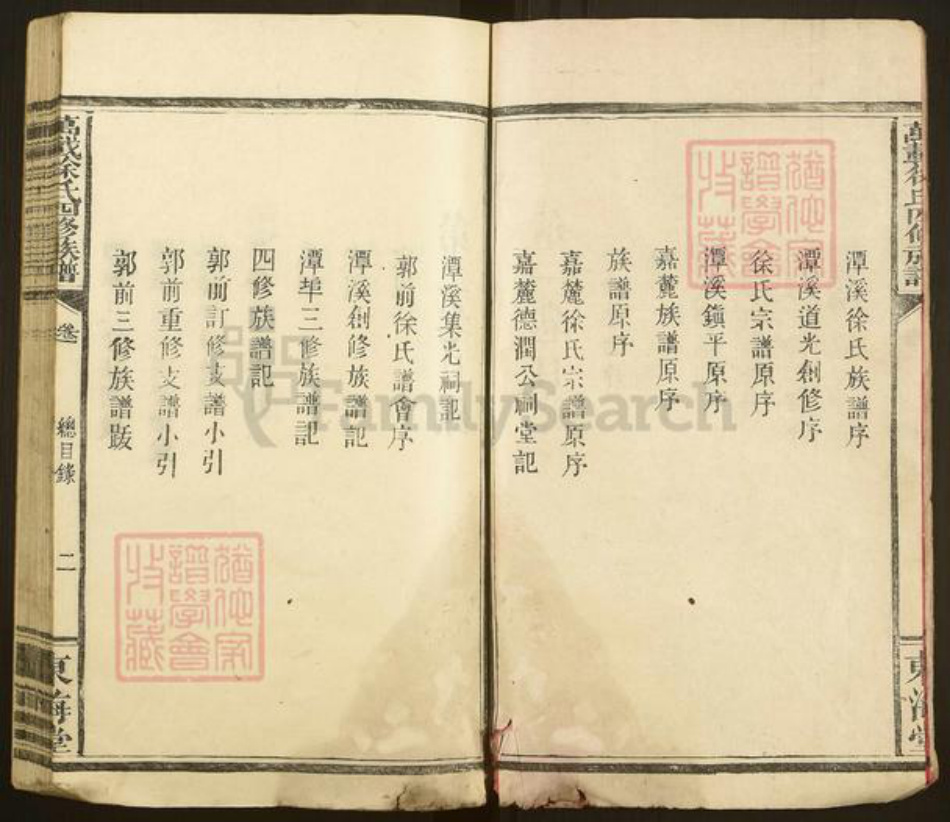 潭溪徐氏族譜序
潭溪道光創修序
徐氏宗譜原序
潭溪鎭平原序
嘉麓族譜原序
族譜原序
嘉麓徐氏宗譜原序
嘉麓德潤公祠堂記
潭溪集光祠記
郭前徐氏譜會序
潭溪創修族譜記
潭埠三修族譜記
四修族譜記
郭前訂修支譜小引
郭前重修支譜小引
郭前三修族譜跋
萬載徐氏四修族譜
卷
總目錄
二
東海堂
猶他家譜學會收藏
猶他家譜學會收藏
FamilySearch
萬載徐氏四修族譜
東海堂